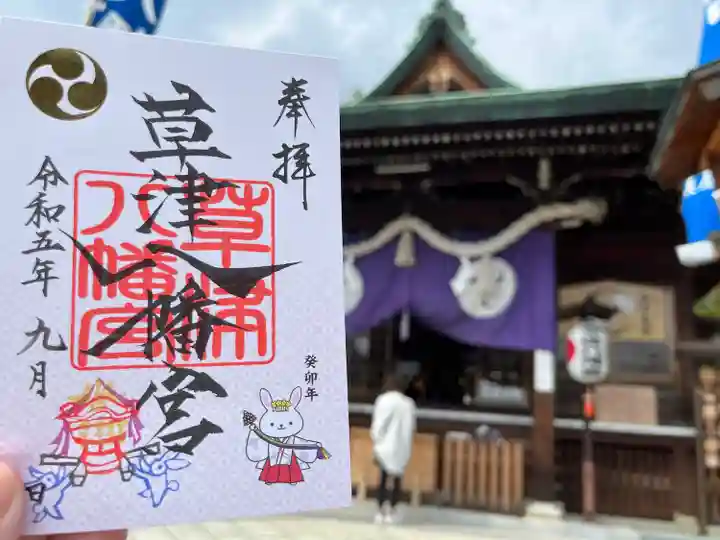 奉拝
草津八幡宮
草津
八幡宮
令和五年 九月
日
癸卯年